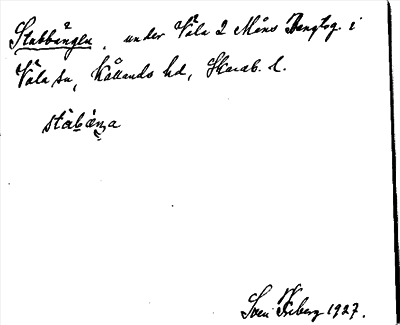 Stubbången, under Våla 2 Måns Bengtsg. i
Våla sn, Kållands hd, Skarab. l.
Sven Friberg 1927.